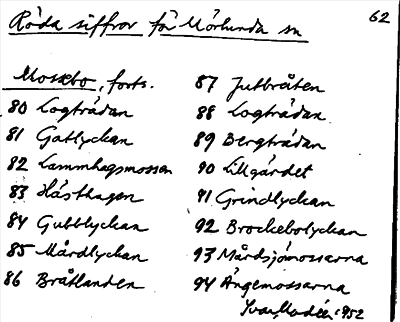 62
Röda siffror för Mörlunda sn
Mosebo, forts.
80 Logträdan
81 Gatlyckan
82 Lammhagsmossen
83 Hästhagen
84 Gubblyckan
85 Mårdlyckan
86 Bråtlanden
87 Jutbråten
88 Logträdan
89 Bergträdan
90 Lillgärdet
91 Grindlyckan
92 Brockebolyckan
93 Mårdsjömossarna
94 Ängemossarna
Ivar Modéer 1952